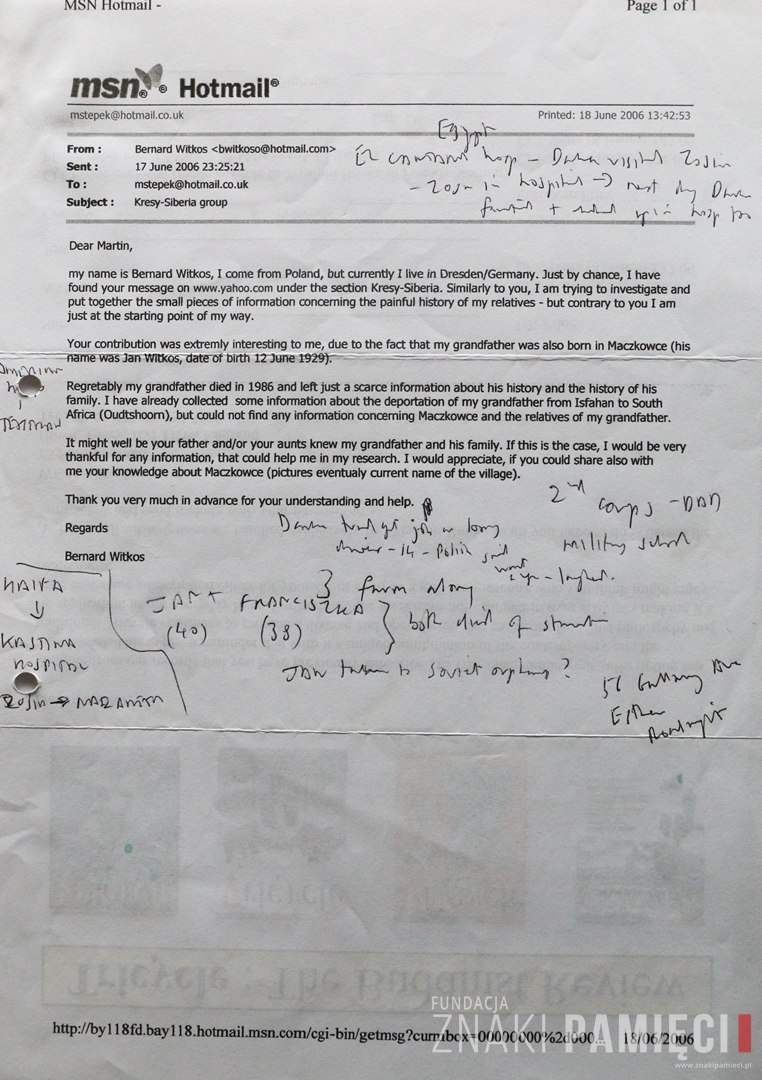 MSN Hotmail -
Page 1 of 1
msn Hotmail®
mstepek@hotmail.co.uk
Printed: 18 June 2006 13:42:53
From : Bernard Witkos <bwitkoso@hotmail.com>
Sent : 17 June 2006 23:25:21
To : mstepek@hotmail.co.uk
Subject : Kresy-Siberia group
Egypt
hosp - Danka visited Zosia
- Zosia in hospital → next day Danka
fainted + ended up in hosp too
Dear Martin,
my name is Bernard Witkos, I come from Poland, but currently I live in Dresden/Germany. Just by chance, I have
found your message on www.yahoo.com under the section Kresy-Siberia. Similarly to you, I am trying to investigate and
put together the small pieces of information concerning the painful history of my relatives - but contrary to you I am
just at the starting point of my way.
Your contribution was extremly interesting to me, due to the fact that my grandfather was also born in Maczkowce (his
name was Jan Witkos, date of birth 12 June 1929).
Regretably my grandfather died in 1986 and left just a scarce information about his history and the history of his
family. I have already collected some information about the deportation of my grandfather from Isfahan to South
Africa (Oudtshoorn), but could not find any information concerning Maczkowce and the relatives of my grandfather.
It might well be your father and/or your aunts knew my grandfather and his family. If this is the case, I would be very
thankful for any information, that could help me in my research. I would appreciate, if you could share also with
me your knowledge about Maczkowce (pictures eventualy current name of the village).
Thank you very much in advance for your understanding and help.
Regards
Bernard Witkos
2nd corps - DAD
military school
Danka
driver - 14 - Polish
HAIFA
↓
KASTINA
HOSPITAL
ZOSIA → NAZARETH
JAN + FRANCISZKA
(40) (38)
farm along
both died of starvation
JAN taken to Soviet orphanage ?
Tricycle : The Buddhist Review
http://by118fd.bay118.hotmail.msn.com/cgi-bin/getmsg?curmbox=00000000%2d000... 18/06/2006
FUNDACJA
ZNAKI PAMIĘCI
www.znakipamieci.pl